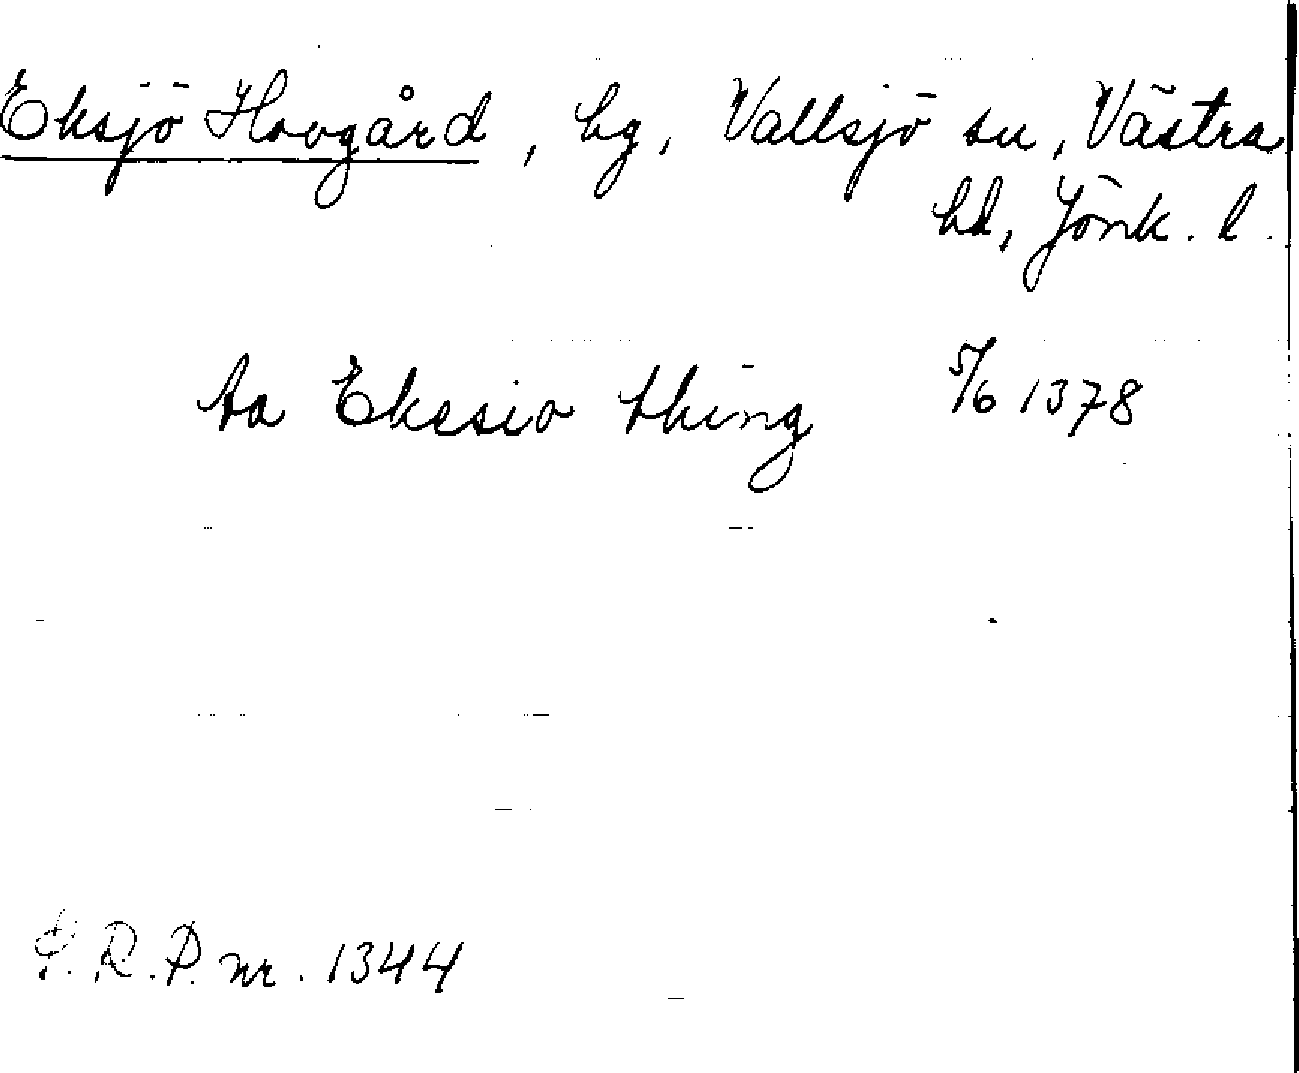 Eksjö Hovgård, hg, Vallsjö sn, Västra
hd, Jönk. l.
aa Ekssio thing 5/6 1378
S.R.P. nr. 1344